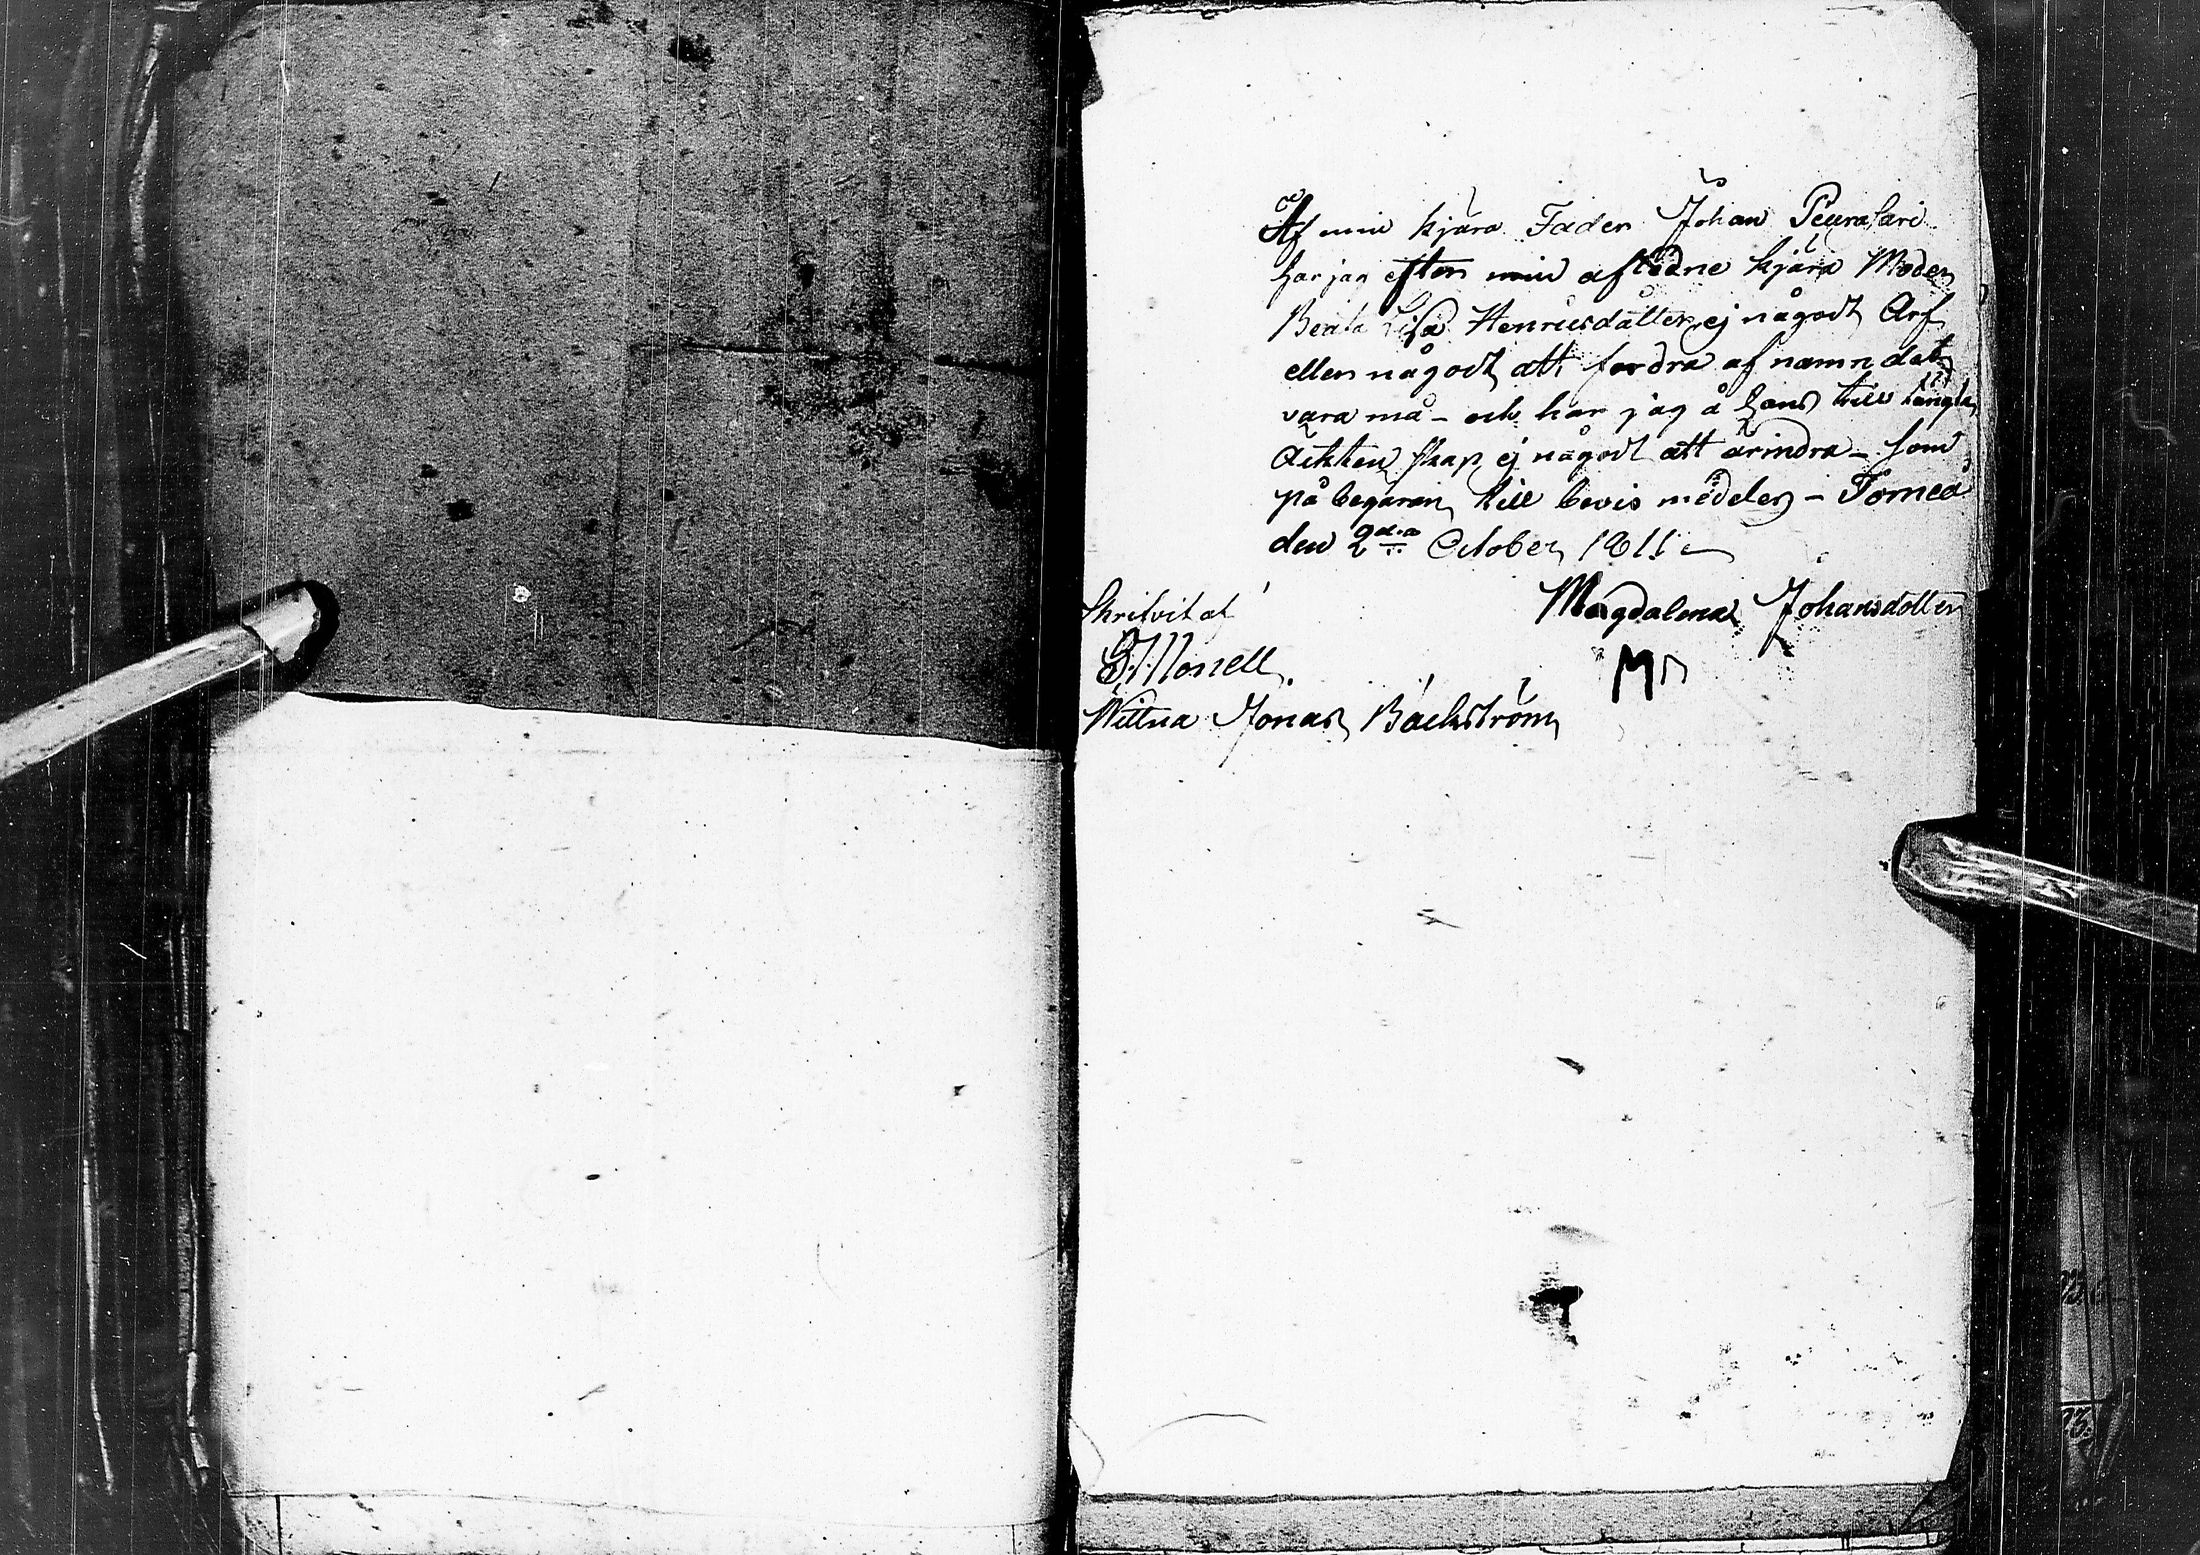 Af min kjära Fader Johan Peurasari
har jag efter min aflédne kjära Moder
Beata Lisa Henricsdåtter ej någodt Arf
eller någodt att fordra af namn det
vara må - och har jag å hans till tängta
Äckten skap ej någodt att ärindra - som
på begäran till bevis médeles - Torneå
den 2dra October 1811
Magdalena Johansdotter
Skrifvit af
Monell
M
Wittna Jonas Bäckström